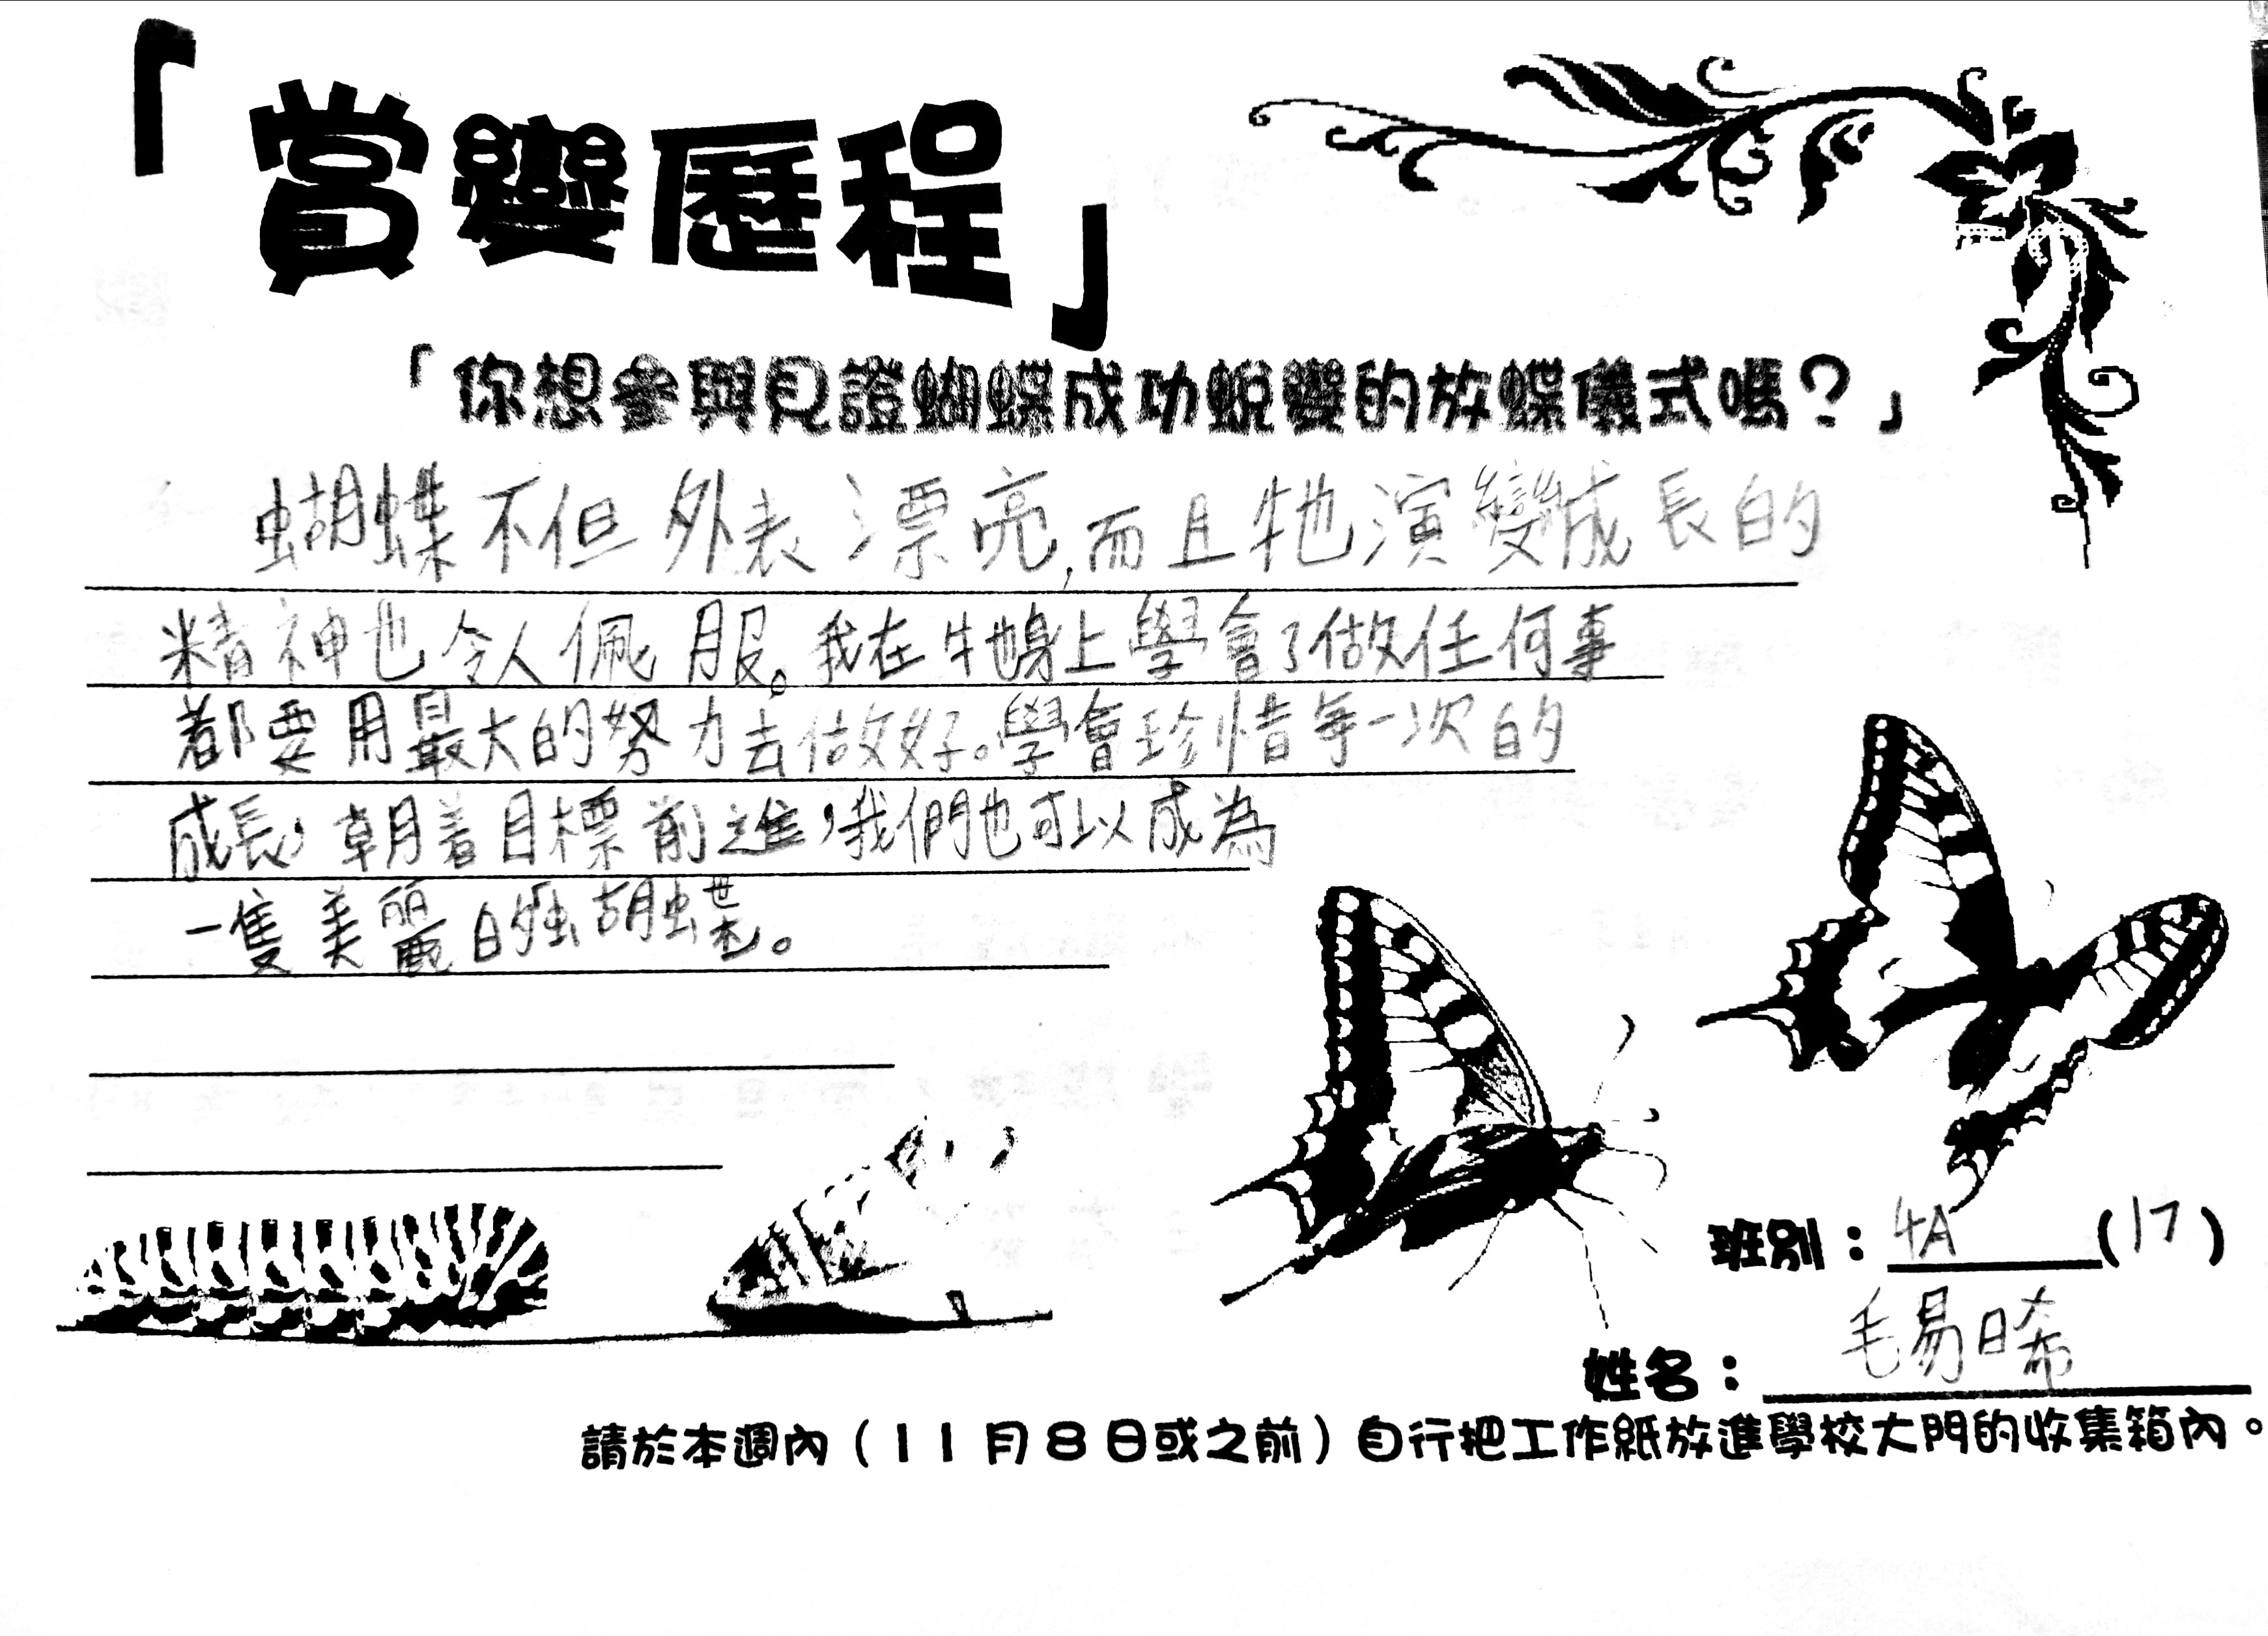 「賞變歷程」
「你想參與見證蝴蝶成功蛻變的放蝶儀式嗎？」
蝴蝶不但外表漂亮,而且牠演變成長的
精神也令人佩服。我在牠身上學會了做任何事
都要用最大的努力去做好。學會珍惜每一次的
成長，朝着目標前進，我們也可以成為
一隻美麗的蝴蝶。
班別：4A(17)
姓名：毛易晞
請於本週內（11月8日或之前）自行把工作紙放進學校大門的收集箱內。